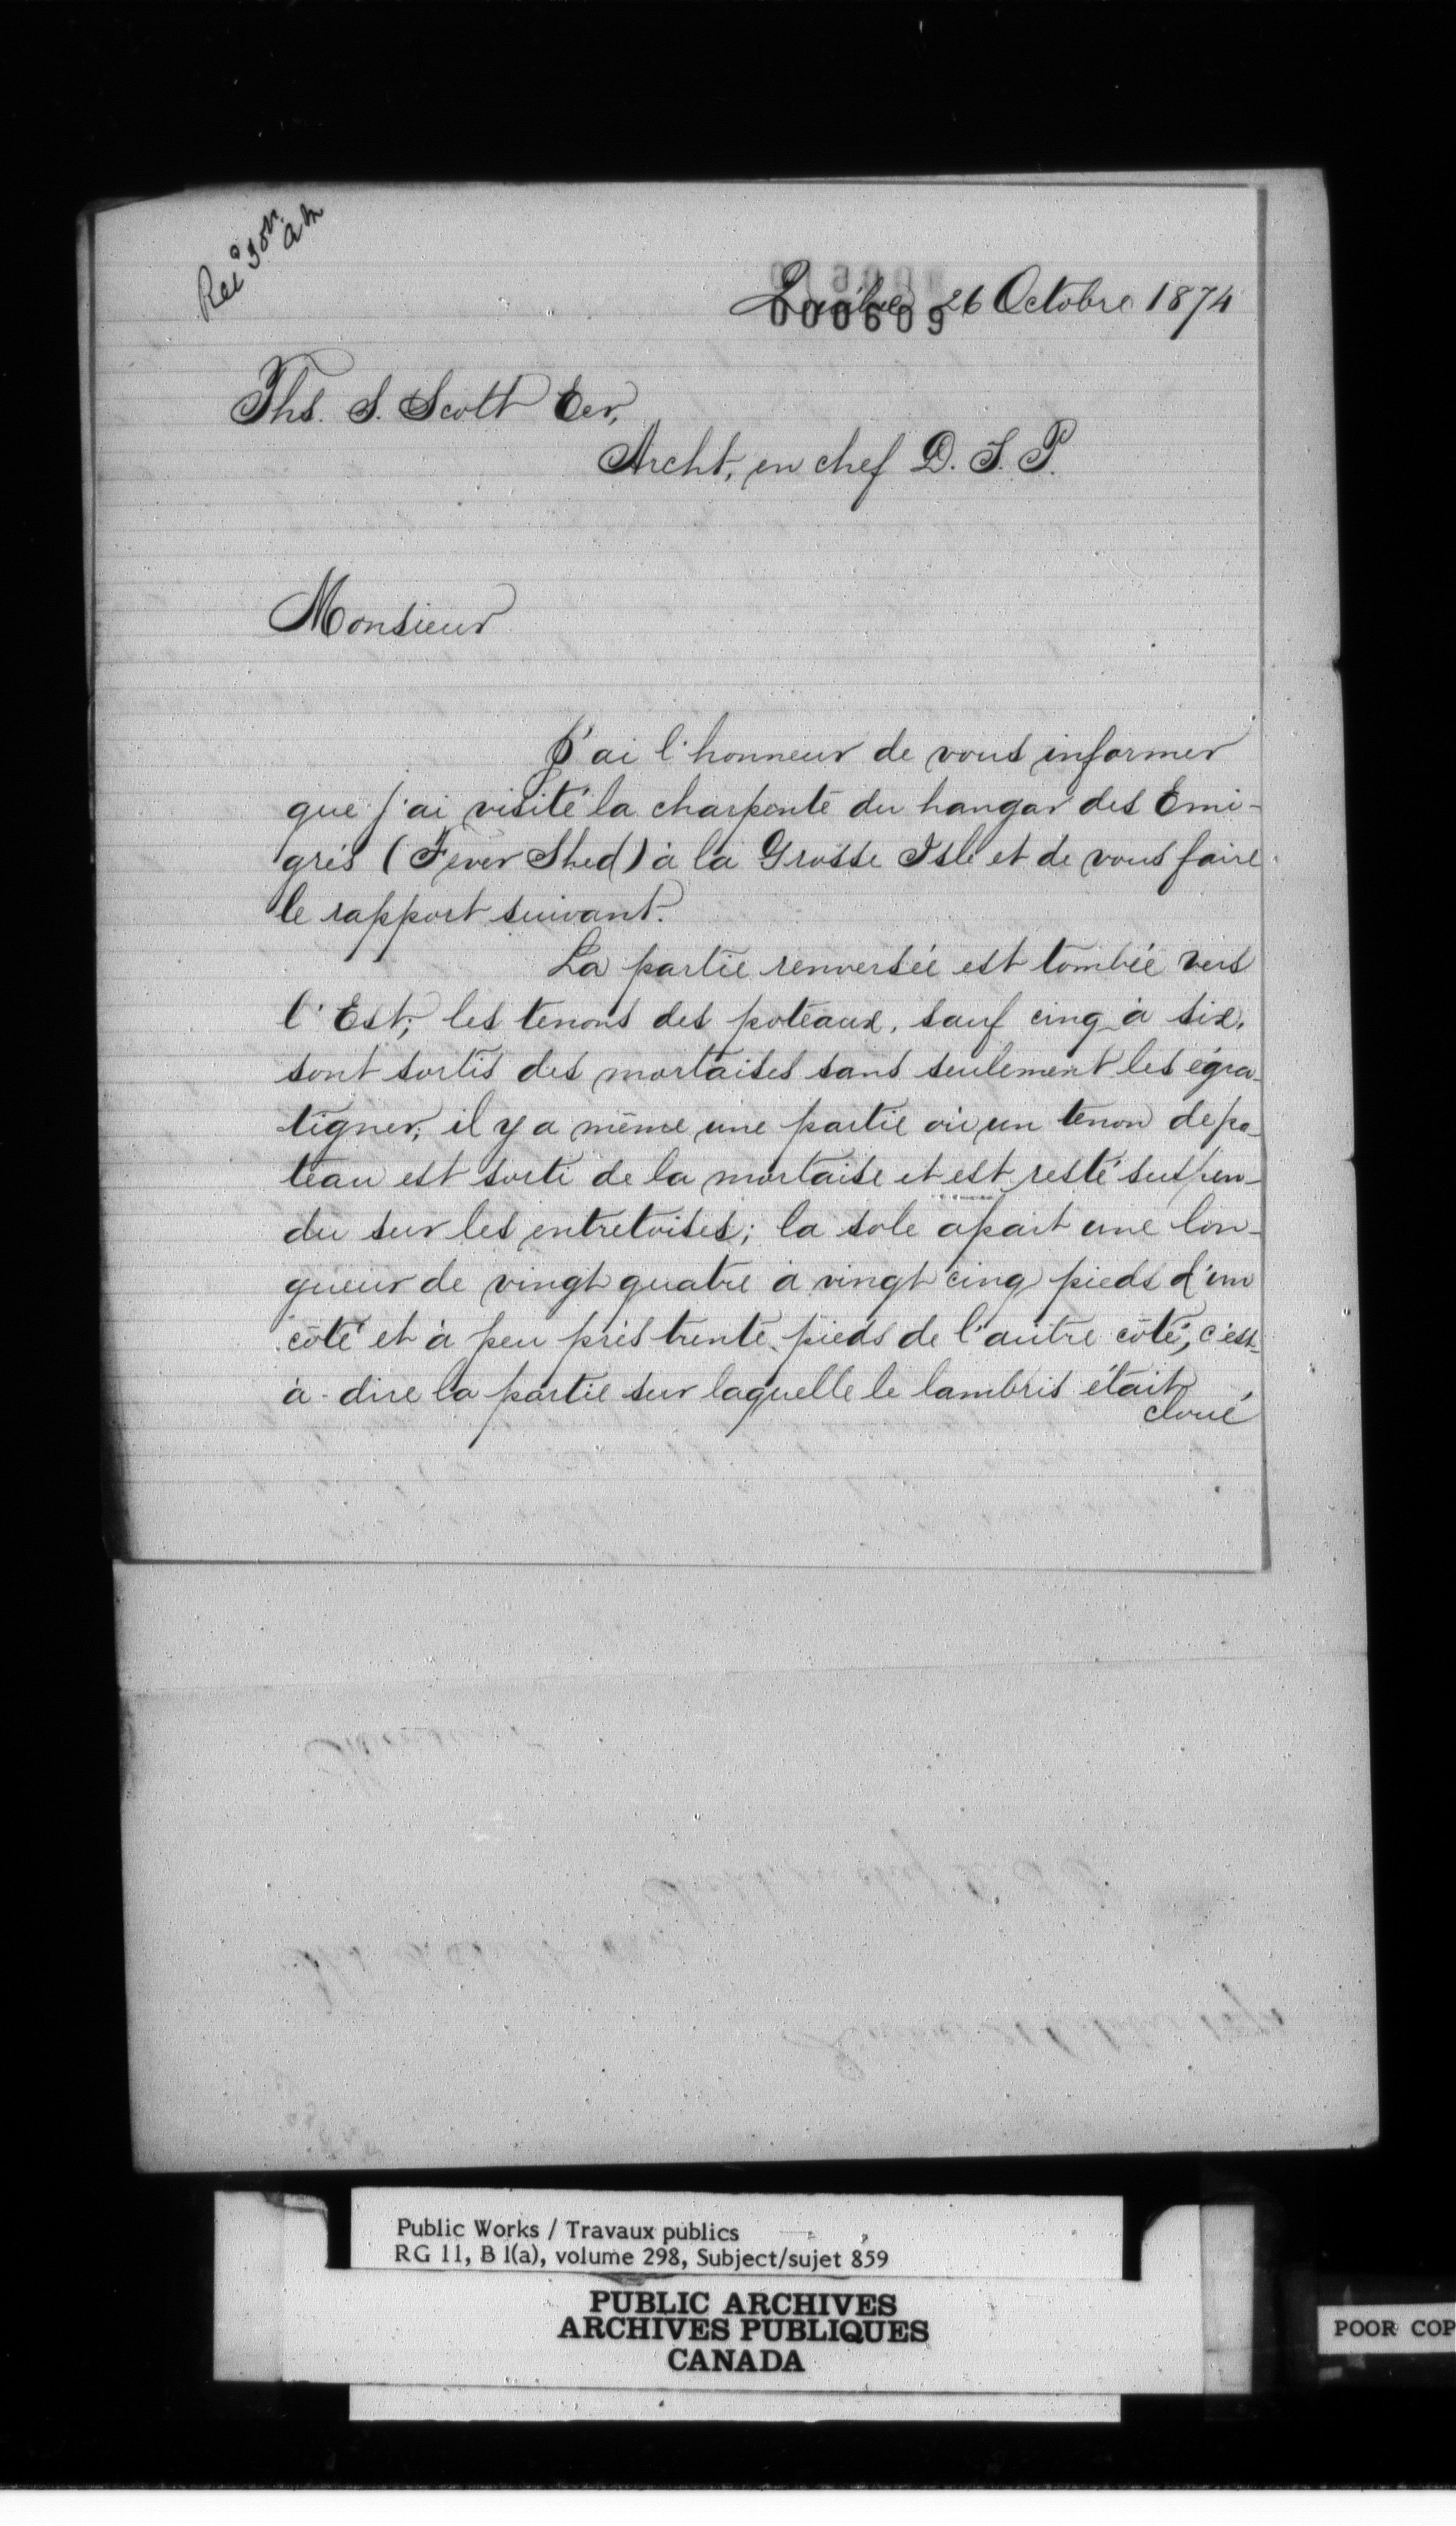 Recd 30th
am
Québec 26 Octobre 1874
000609
Ths. S. Scott Ecr,
Archt, en chef D. T. P.
Monsieur
J'ai l'honneur de vous informer
que j'ai visité la charpente du hangar des Emi-
grés (Fever Shed) à la Grosse Isle et de vous faire
le rapport suivant.
La partie renversée est tombée vers
l'Est; les tenons des poteaux, sauf cinq à six,
sont sortis des mortaises sans seulement les égra-
tigner; il y a même une partie où un tenon de po-
teau est sorti de la mortaise et est resté suspen-
du sur les entretoises; la sole a une lon-
gueur de vingt quatre à vingt cinq pieds d'un
côté et à peu près trente pieds de l'autre côté, c'est-
à-dire la partie sur laquelle le lambris était
cloué
Public Works / Travaux publics
RG 11, B 1(a), volume 298, Subject/sujet 859
PUBLIC ARCHIVES
ARCHIVES PUBLIQUES
CANADA
POOR COP